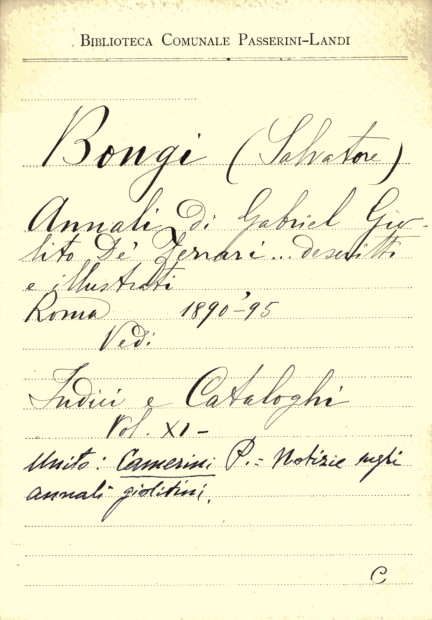 BIBLIOTECA COMUNALE PASSERINI-LANDI
Bongi (Salvatore)
Annali di Gabriel Gio-
lito De' Ferrari... descritti
e illustrati
Roma 1890-95
Vedi
Indici e Cataloghi
Vol. XI-
Unito: Camerini P.- Notizie sugli
annali giolitini.
C